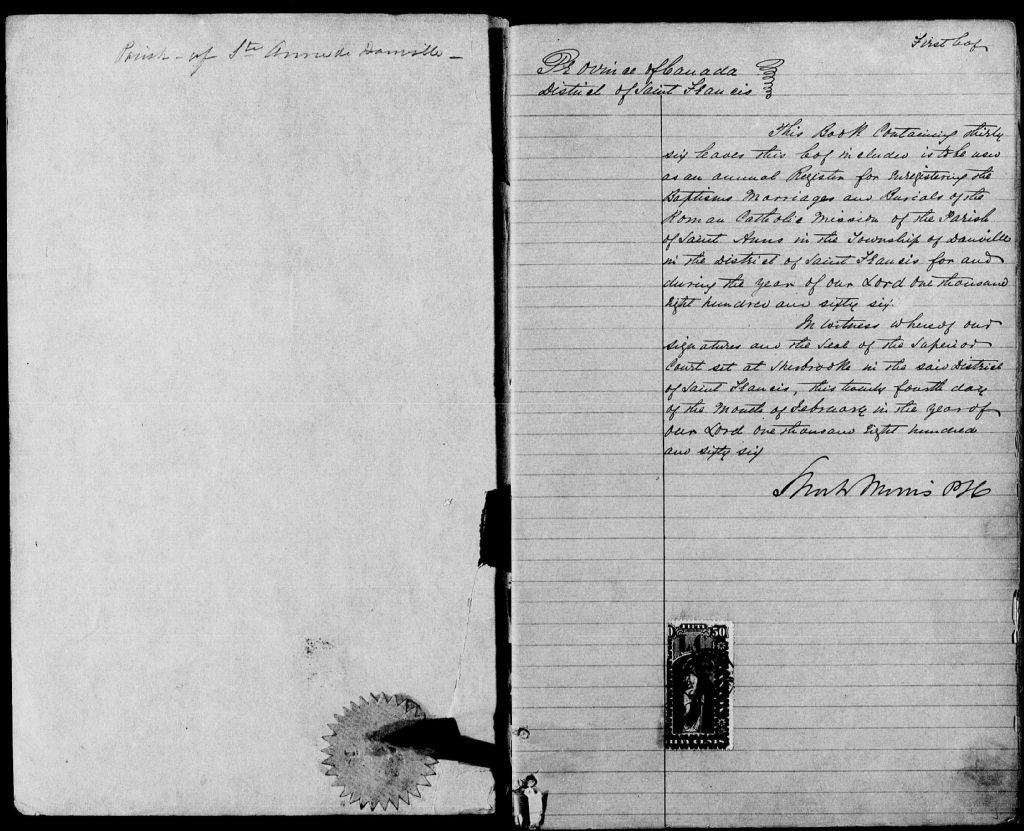 Parish - of Ste Anne de Danville -
First Cof
Province of Canada
District of Saint Francis
This Book Containing thirty
six leaves this Cof included is to be used
as an annual Register for Enregistering the
Baptisms Marriages and Burials of the
Roman Catholic Mission of the Parish
of Saint Anns in the Township of Danville
in the District of Saint Francis for and
during the year of our Lord One thousand
Eight hundred and sixty six.
In witness whereof our
signatures and the Seal of the Superior
Court set at Sherbrooke in the said District
of Saint Francis, this twenty fourth day
of the Month of February in the year of
our Lord One thousand Eight hundred
and sixty six
Short & Morris PSC
FIFTY 50